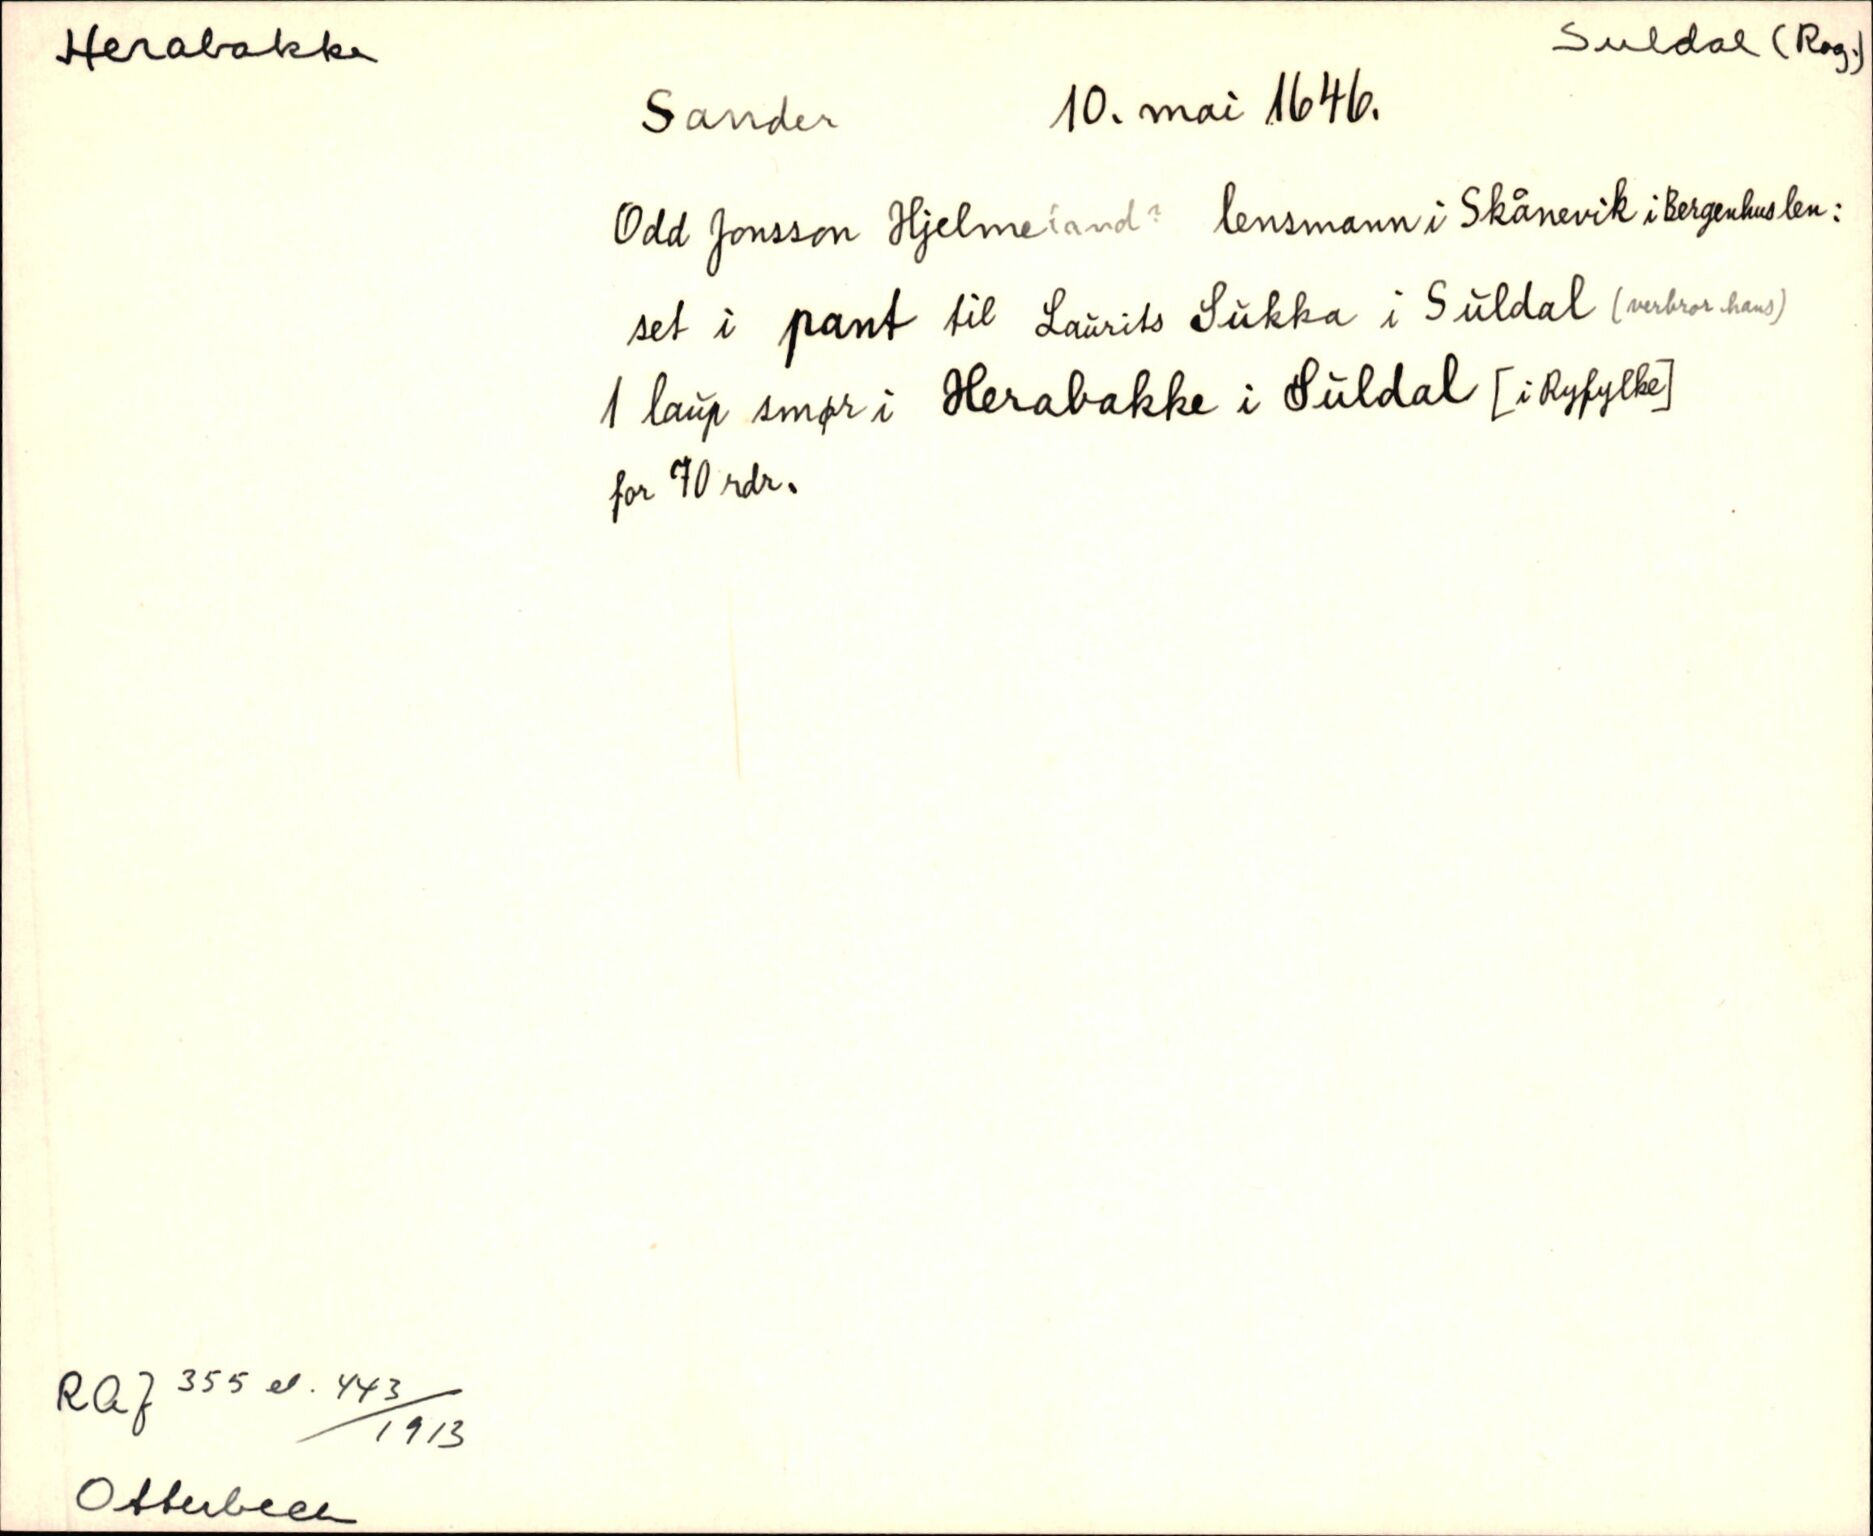 Herabakke
Suldal (Rog.)
Sander 10. mai 1646.
Odd Jonsson Hjelmeland? lensmann i Skånevik i Bergenhus len:
set i pant til Laurits Sukka i Suldal (verbror hans)
1 laup smør i Herabakke i Suldal [i Ryfylke]
for 70 rdr.
RAJ 355 el. 443/1913
Otterbech